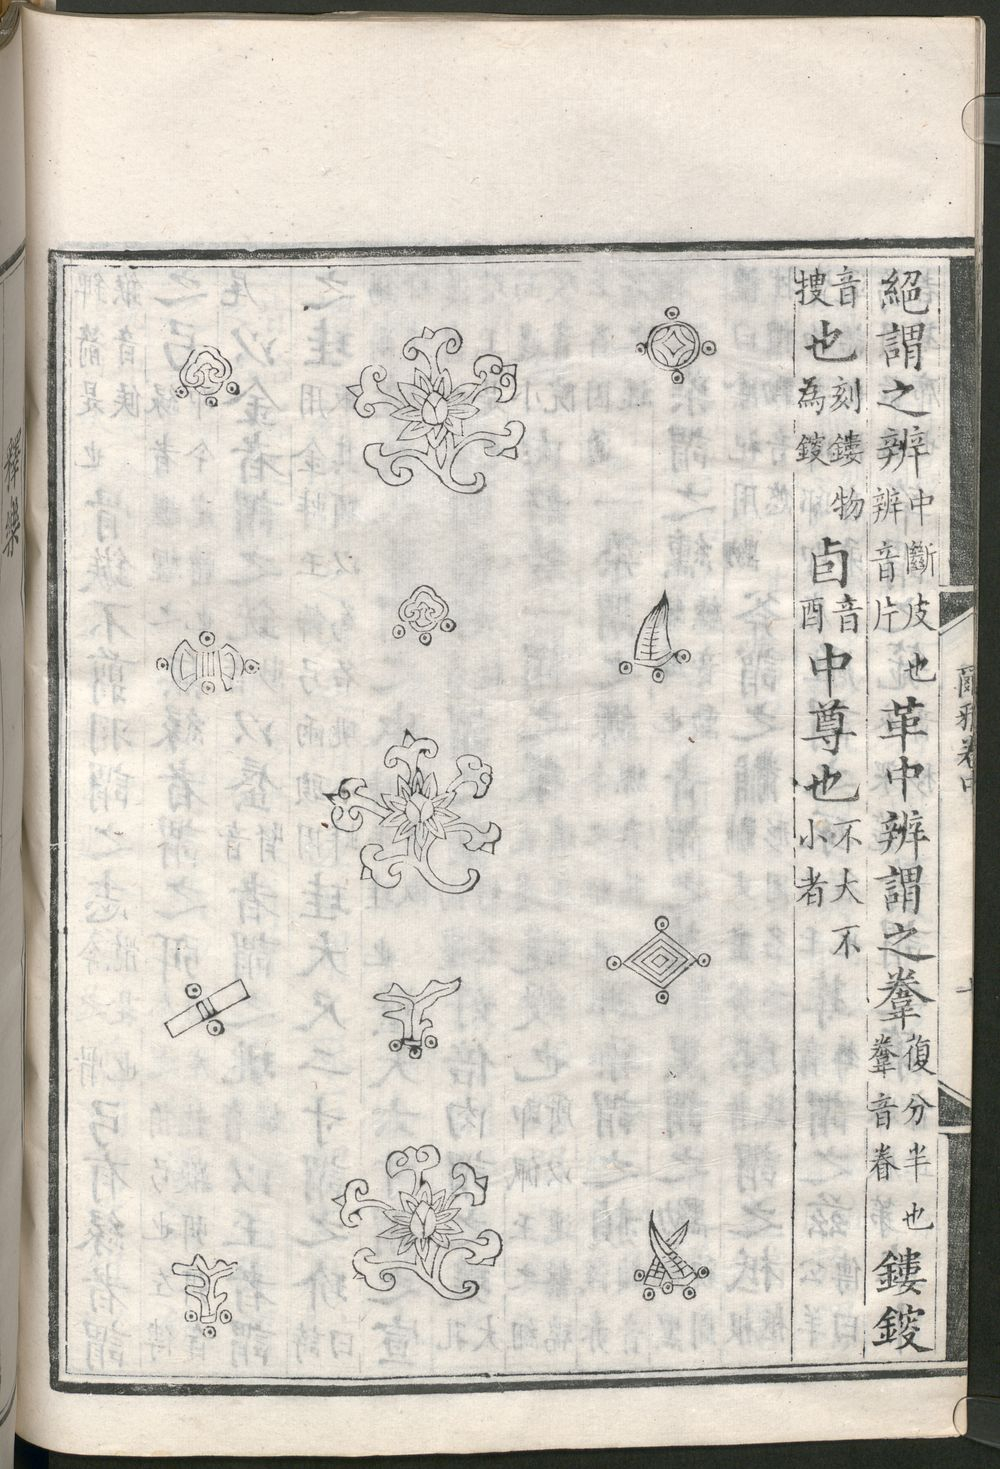 爾雅卷中
絕謂之辨中斷皮也辨音片革中辨謂之韏復分半也韏音眷鏤鎪
音搜也刻鏤物為鎪卣音酉中尊也不大不小者
釋樂